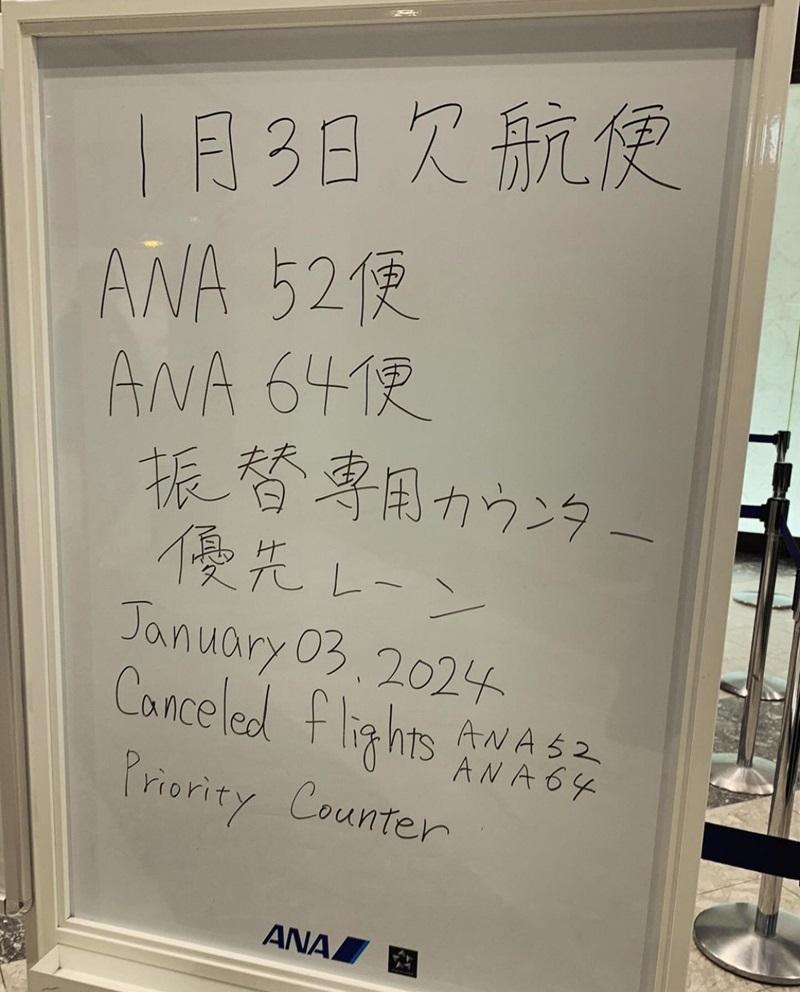 1月3日 欠航便
ANA 52便
ANA 64便
振替専用カウンター
優先レーン
January 03. 2024
Canceled flights ANA52
ANA64
Priority Counter
ANA